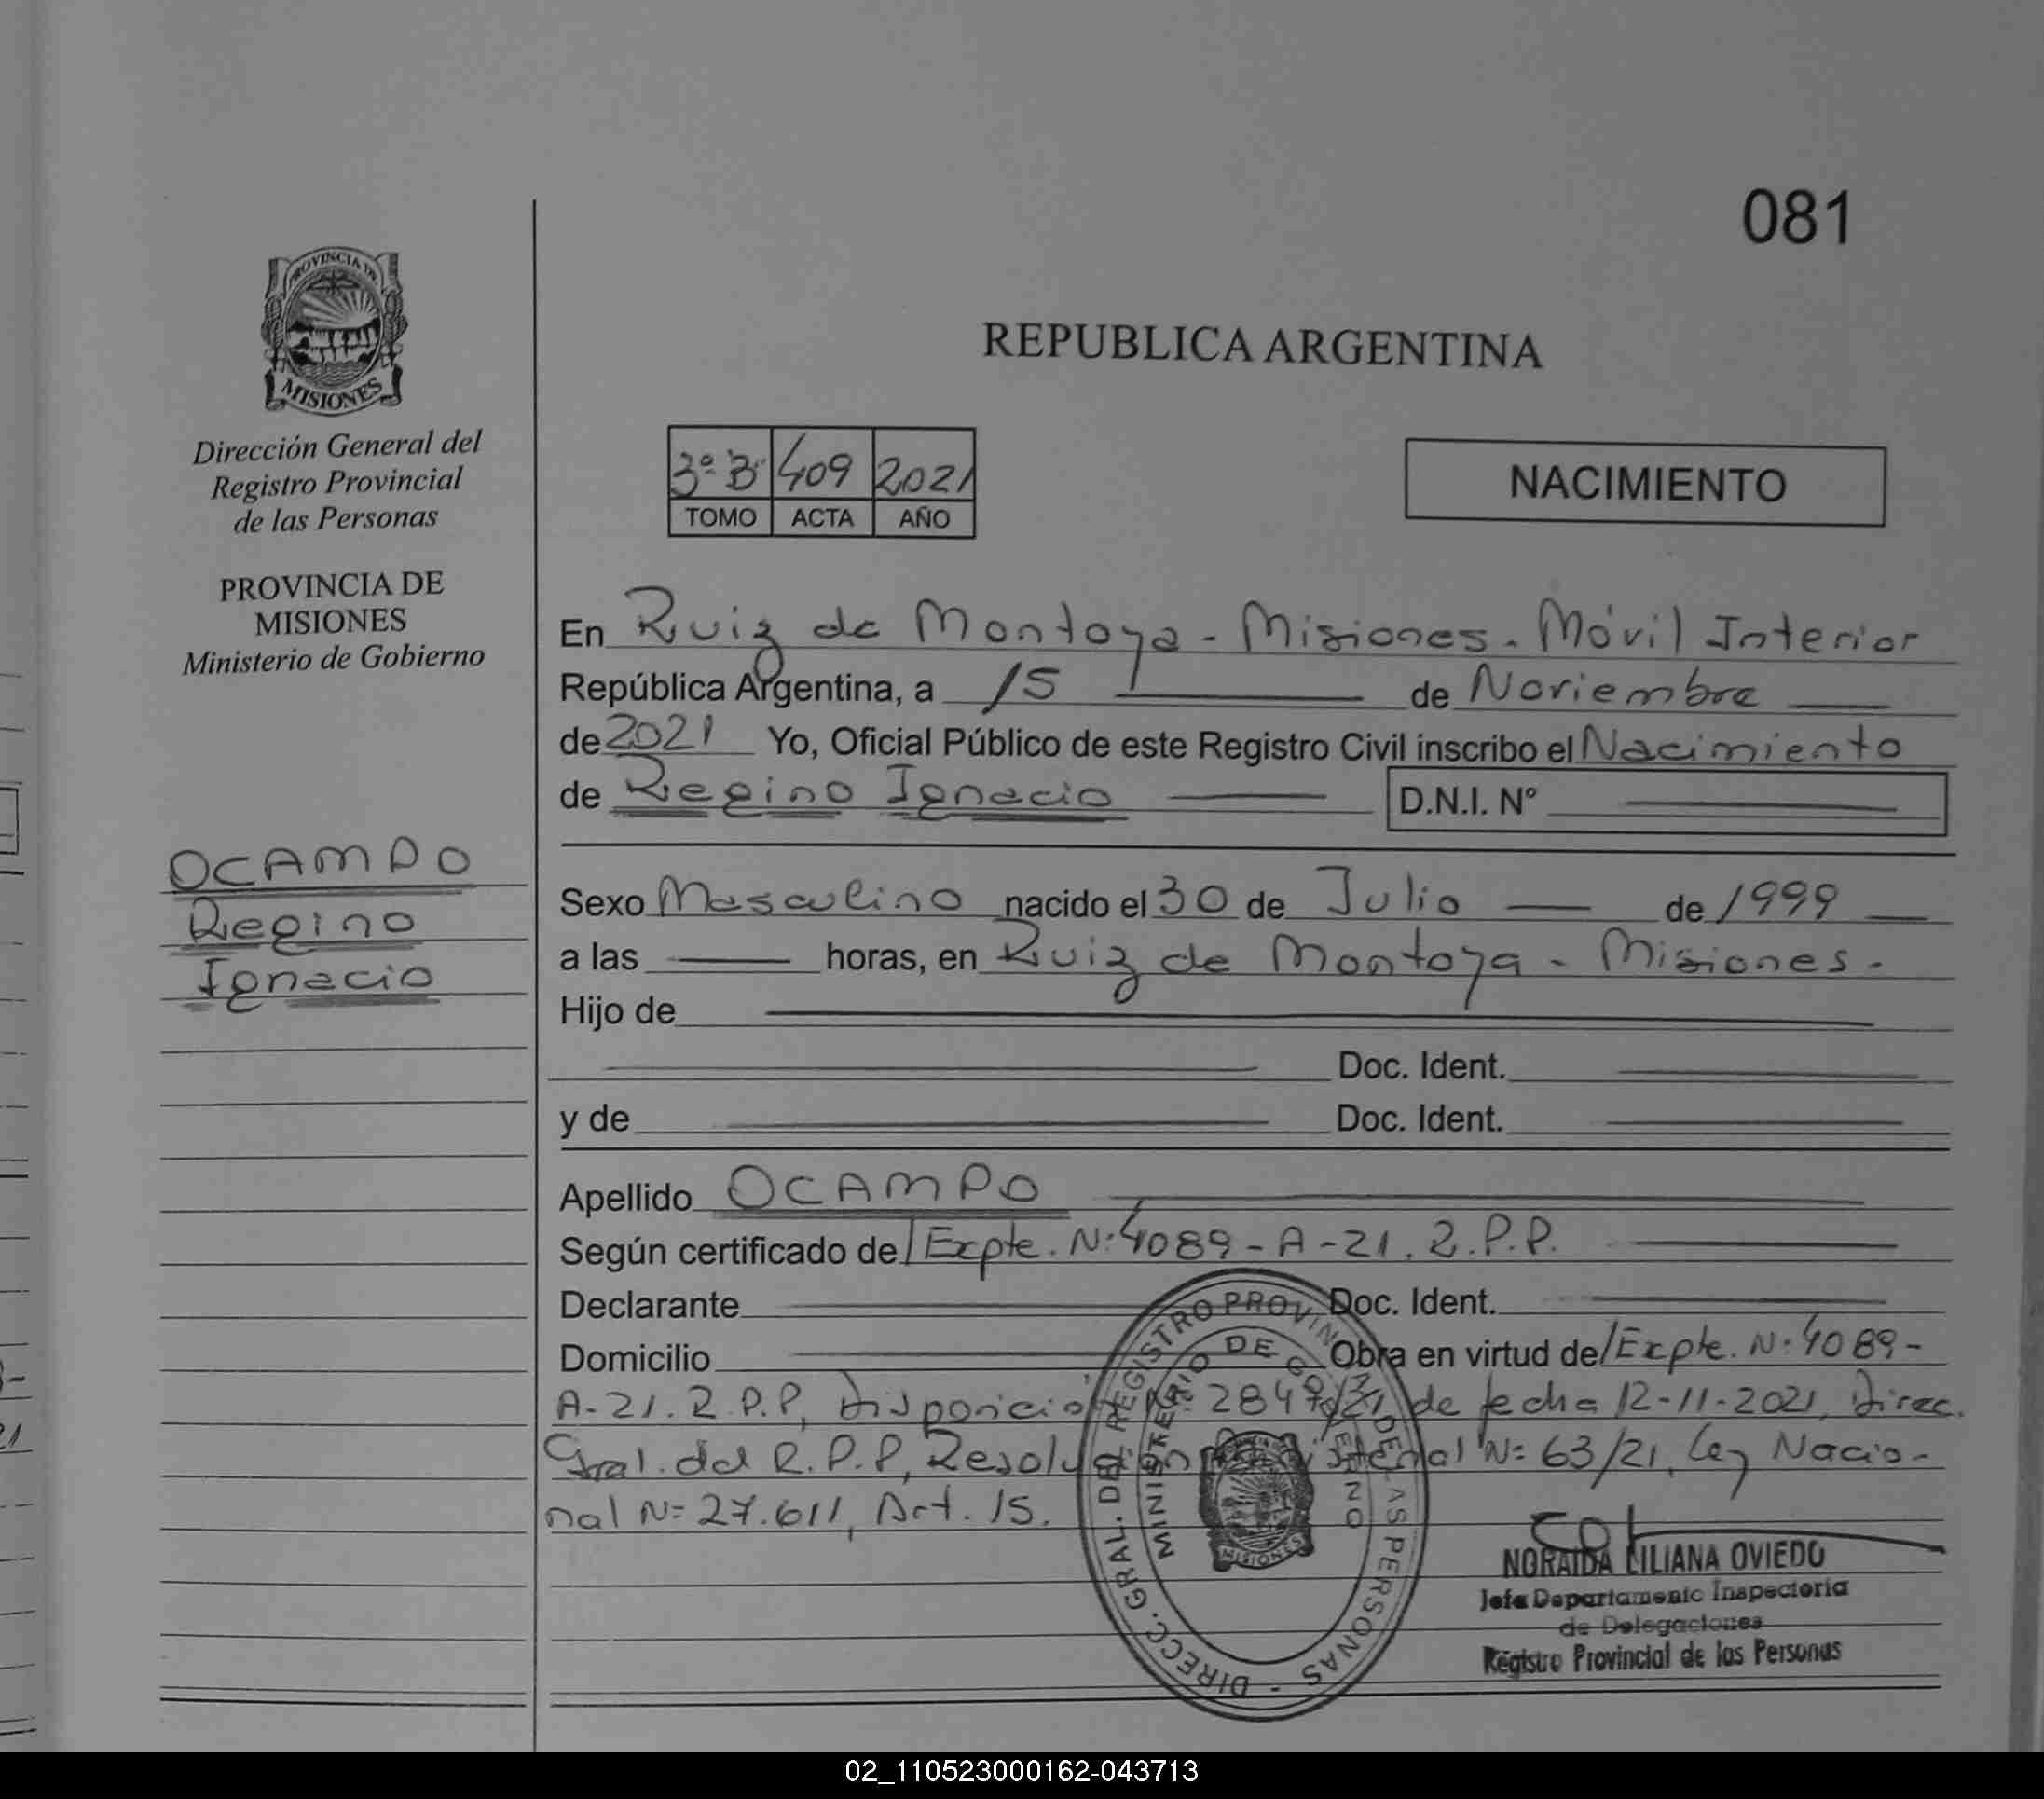 081
PROVINCIA DE
MISIONES
Dirección General del
Registro Provincial
de las Personas
PROVINCIA DE
MISIONES
Ministerio de Gobierno
OCAMPO
Regino
Ignacio
REPUBLICA ARGENTINA
3º B 409 2021
TOMO ACTA AÑO
NACIMIENTO
En Ruiz de Montoya - Misiones - Móvil Interior
República Argentina, a 15 de Noviembre
de 2021 Yo, Oficial Público de este Registro Civil inscribo el Nacimiento
de Regino Ignacio D.N.I. N°
Sexo Masculino nacido el 30 de Julio de 1999
a las horas, en Ruiz de Montoya - Misiones.
Hijo de
Doc. Ident.
y de Doc. Ident.
Apellido OCAMPO
Según certificado de/Expte. Nº 4089-A-21. R.P.P.
Declarante Doc. Ident.
Domicilio Obra en virtud de/Expte. Nº 4089-
A-21. R.P.P, Disposición Nº 2847/21 de fecha 12-11-2021, Direc.
Gral. del R.P.P, Resolución Ministerial Nº 63/21, Ley Nacio-
nal Nº 27.611, Art. 15.
DIRECC. GRAL. DEL REGISTRO PROVINCIAL DE LAS PERSONAS -
MINISTERIO DE GOBIERNO
MISIONES
NORAIDA LILIANA OVIEDO
Jefa Departamento Inspectoria
de Delegaciones
Registro Provincial de las Personas
02_110523000162-043713